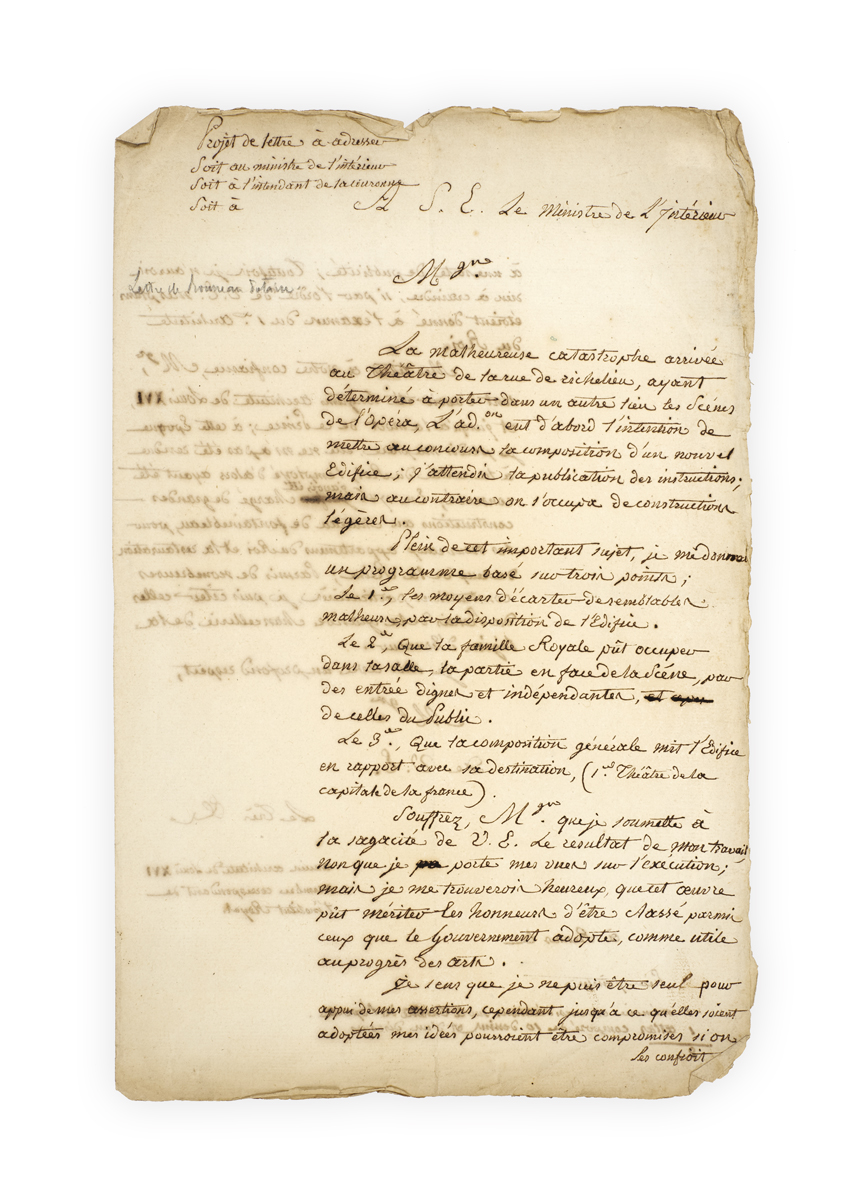 Projet de lettre à adresser
Soit au ministre de l'intérieur
Soit à l'intendant de la couronne
Soit à
A S. E. Le Ministre de L'Intérieur
M.gnr
Lettre de
La malheureuse catastrophe arrivée
au Théâtre de la rue de richelieu, ayant
déterminé à porter dans un autre lieu les Scénes
de l'Opéra, L'ad.on eut d'abord l'intention de
mettre au concours la composition d'un nouvel
Edifice; j'attendis la publication des instructions;
mais au contraire on s'occupa de constructions
légères.
Plein de cet important sujet, je me donnai
un programme basé sur trois points;
Le 1.er, les moyens d'écarter de semblables
malheurs, par la disposition de l'Edifice.
Le 2.e, Que la famille Royale pût occuper
dans la salle, la partie en face de la Scéne, par
des entrée dignes et indépendantes,
de celles du Public.
Le 3.e, Que la composition générale mit l'Edifice
en rapport avec sa destination, (1.er Théâtre de la
capitale de la france).
Souffrez, M.gnr que je soumette à
la sagacité de V. E. Le résultat de mon travail,
Non que je porte mes vues sur l'exécution;
mais je me trouverois heureux, que cet œuvre
pût mériter les honneurs d'être classé parmi
ceux que le Gouvernement adopte, comme utile
au progrès des arts.
Je sens que je ne puis être seul pour
appui de mes assertions, cependant jusqu'à ce qu'elles soient
adoptées mes idées pourroient être compromises si on
les confioit